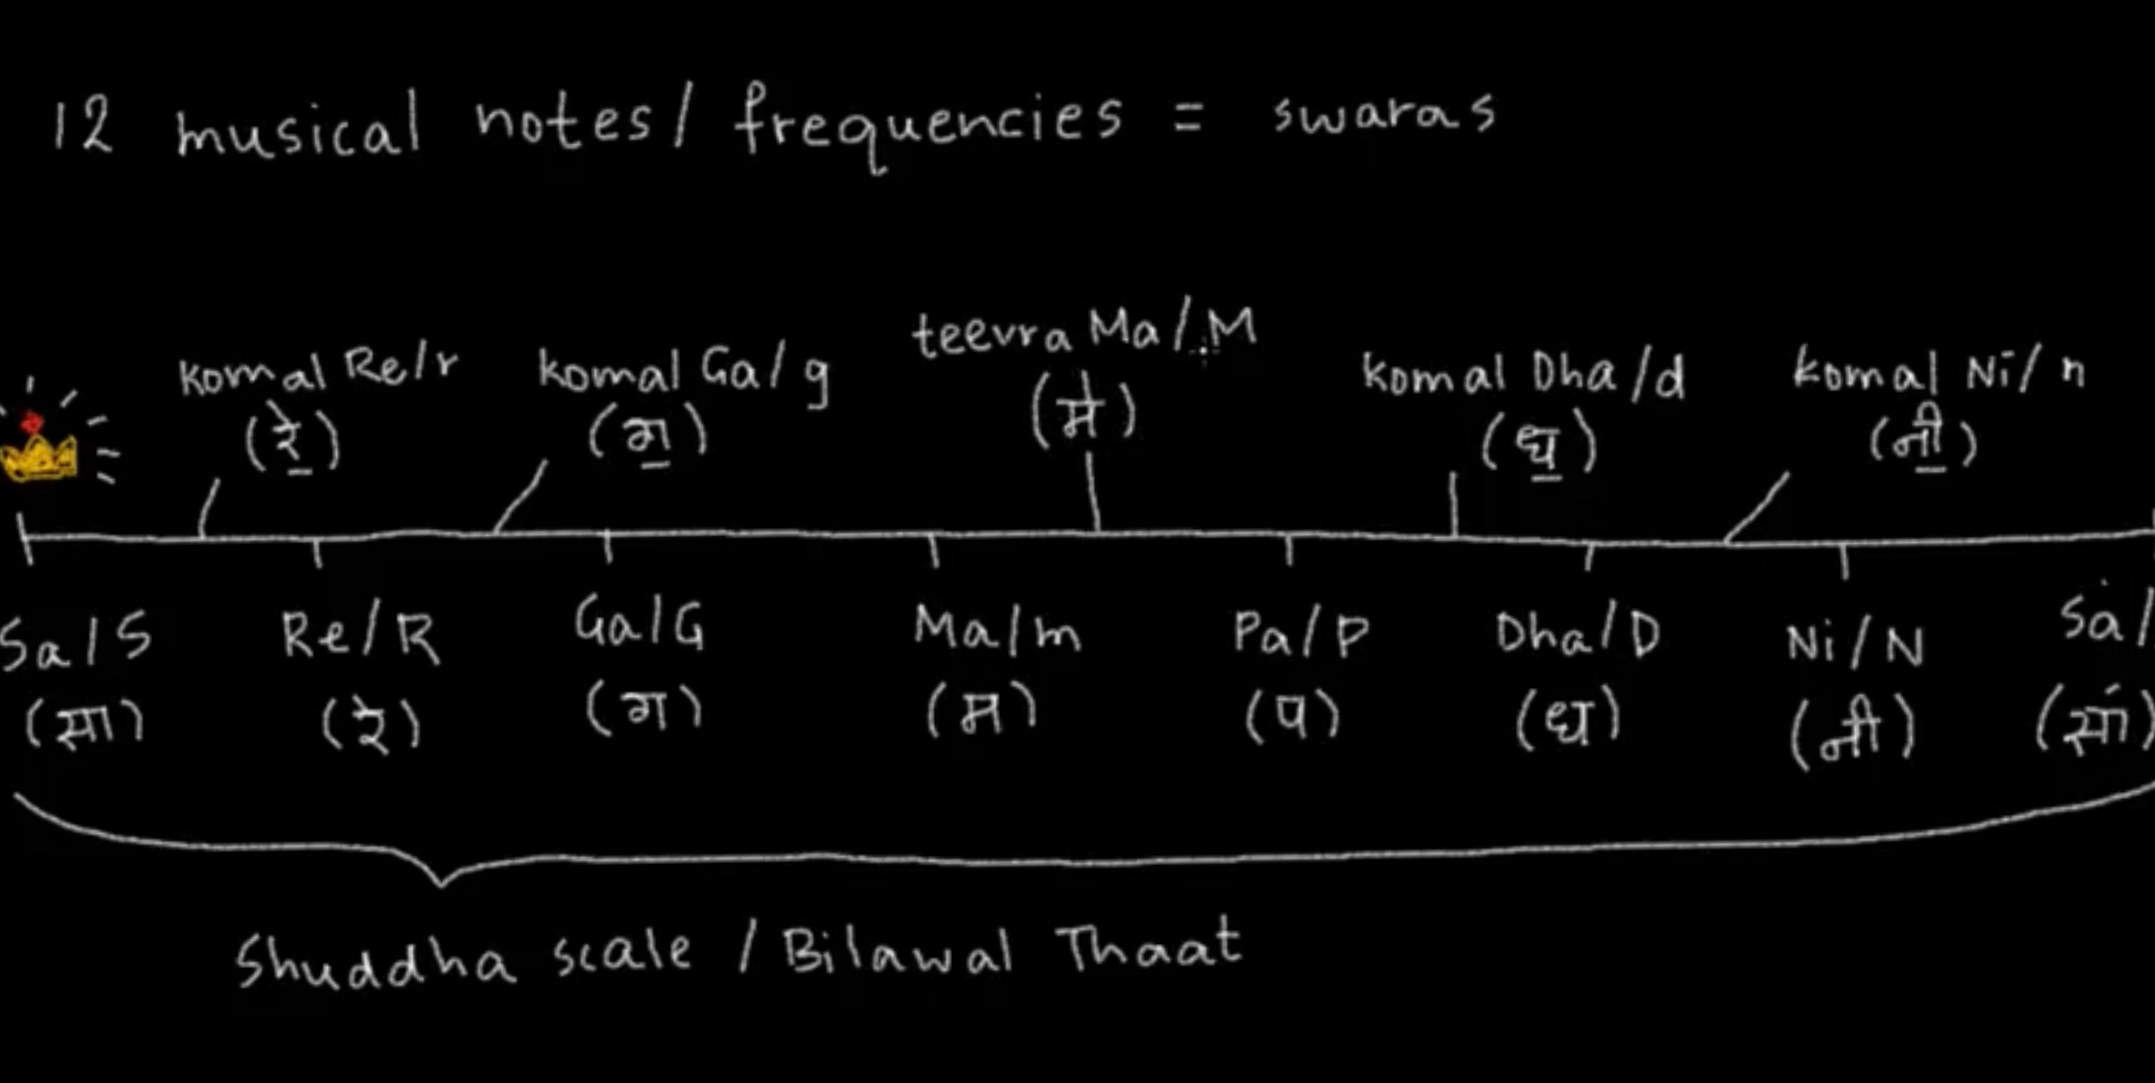 12 musical notes/ frequencies = swaras
komal Re/r komal Ga/g teevra Ma/M komal Dha/d komal Ni/n
(रे॒) (ग॒) (म॑) (ध॒) (नी॒)
Sa/S Re/R Ga/G Ma/m Pa/P Dha/D Ni/N Ṡa/
(सा) (रे) (ग) (म) (प) (ध) (नी) (सां)
Shuddha scale / Bilawal Thaat